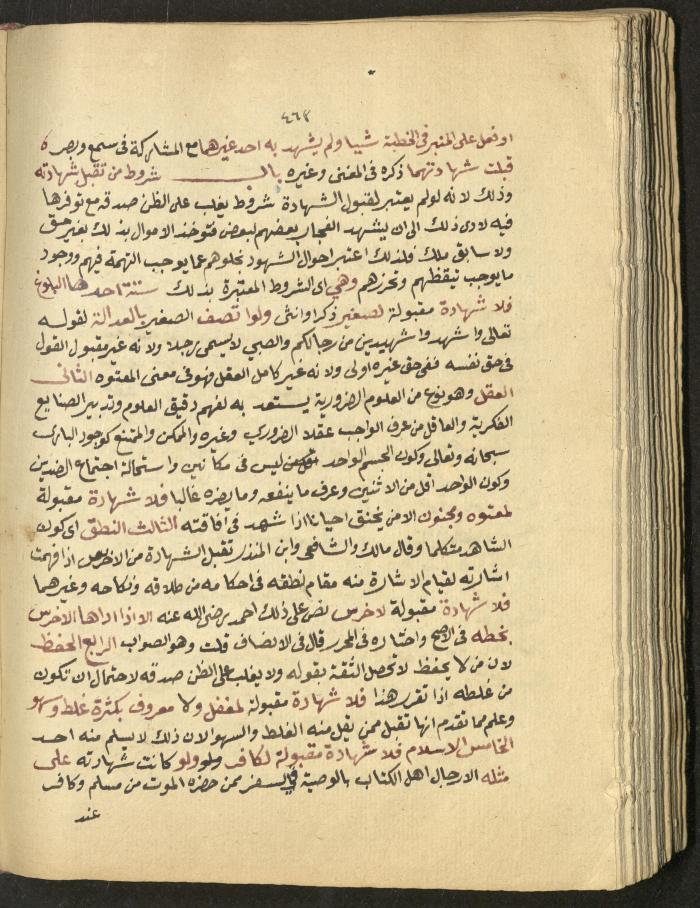 ٤٦٨
او فعل على المنبر فى الخطبة شيا ولم يشهد به احد غيرهما مع المشاركة فى سمع وبصر
قبلت شهادتهما ذكره فى المغنى وغيره باب شروط من تقبل شهادته
وذلك لانه لو لم يعتبر لقبول الشهادة شروط يغلب على الظن صدقه مع توفرها
فيه لادى ذلك الى ان يشهد الفجار بعضهم لبعض فتوخذ الاموال بذلك بغير حق
ولا سابق ملك فلذلك اعتبر احوال الشهود بخلوهم عما يوجب التهمة فيهم ووجود
ما يوجب تيقظهم وتحرزهم وهى اى الشروط المعتبرة بذلك ستة احدها البلوغ
فلا شهادة مقبولة لصغير ذكر او انثى ولو اتصف الصغير بالعدالة لقوله
تعالى واشهدوا شهيدين من رجالكم والصبي لا يسمى رجلا ولانه غير مقبول القول
فى حق نفسه ففى حق غيره اولى ولانه غير كامل العقل فهو فى معنى المعتوه الثانى
العقل وهو نوع من العلوم الضرورية يستعد به لفهم دقيق العلوم وتدبير الصنايع
الفكرية والعاقل من عرف الواجب عقلا الضرورى وغيره والممكن والممتنع كوجود البارى
سبحانه وتعالى وكون الجسم الواحد ليس فى مكانين واستحالة اجتماع الضدين
وكون الواحد اقل من الاثنين وعرف ما ينفعه وما يضره غالبا فلا شهادة مقبولة
لمعتوه ومجنون الا من يخنق احيانا اذا شهد فى افاقته الثالث النطق اى كون
الشاهد متكلما وقال مالك والشافعى وابن المنذر تقبل الشهادة من الاخرس اذا فهمت
اشارته لقيام الاشارة منه مقام نطقه فى احكامه من طلاقه ونكاحه وغيرهما
فلا شهادة مقبولة لاخرس نص على ذلك احمد رضى الله عنه الا اذا اداها الاخرس
بخطه فى الاصح واختاره فى المحرر قال فى الانصاف قلت وهو الصواب الرابع الحفظ
لان من لا يحفظ لا تحصل الثقة بقوله ولا يغلب على الظن صدقه لاحتمال ان تكون
من غلطه اذا تقرر هذا فلا شهادة مقبولة لمغفل ولا معروف بكثرة غلط وسهو
وعلم مما تقدم انها تقبل ممن يقل منه الغلط والسهو لان ذلك لا يسلم منه احد
الخامس الاسلام فلا شهادة مقبولة لكافر ولو ولو كانت شهادته على
مثله الا رجال اهل الكتاب بالوصية فى السفر ممن حضره الموت من مسلم وكافر
عند